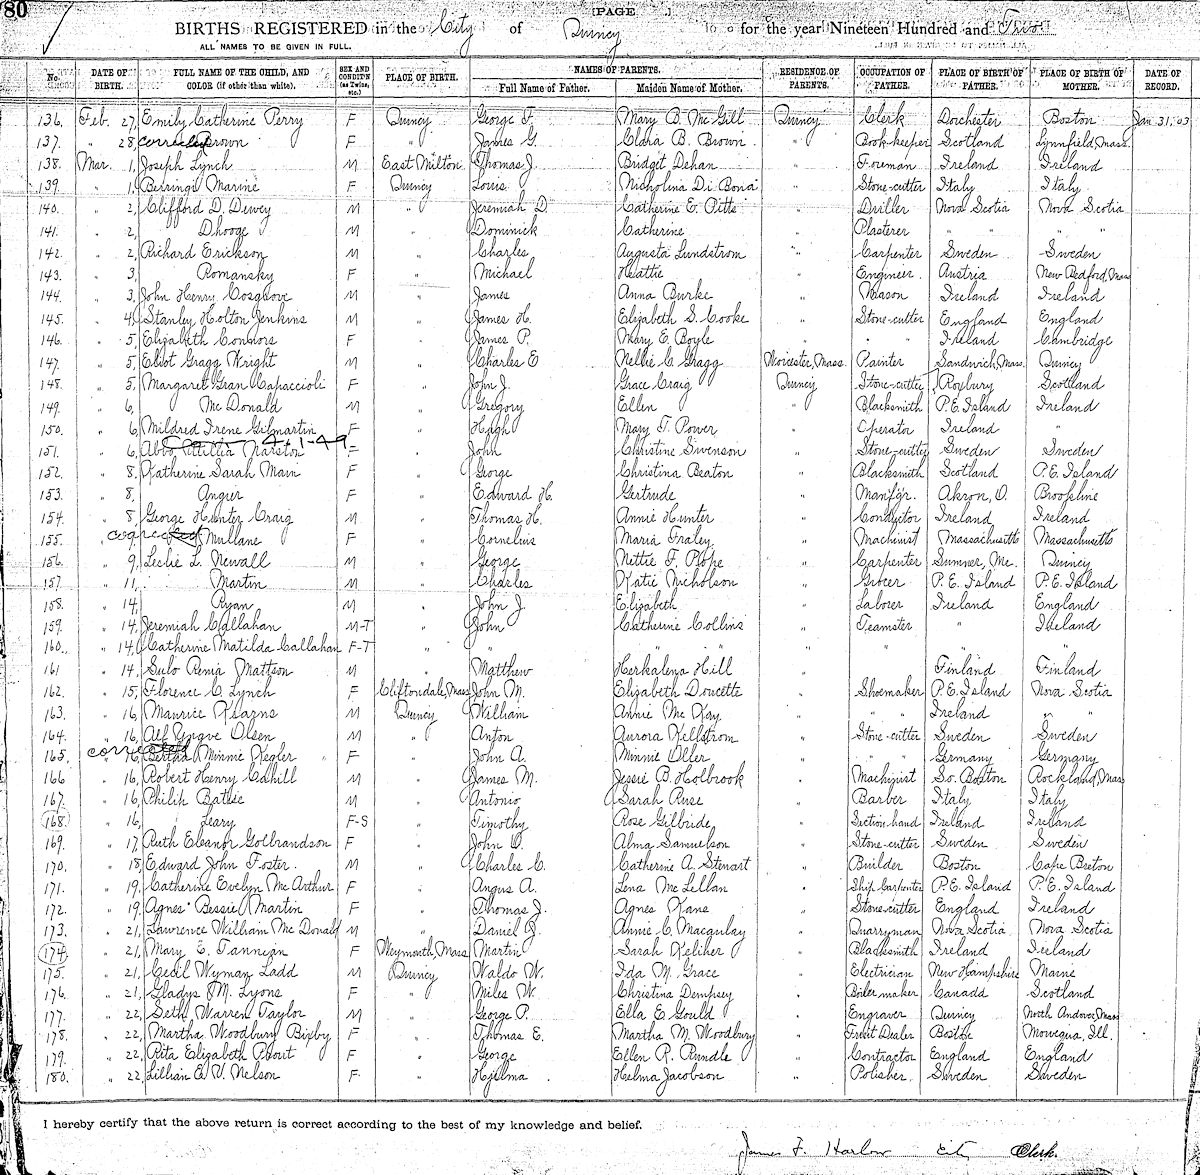 80
[PAGE ]
BIRTHS REGISTERED in the City of Quincy for the year Nineteen Hundred and Two
ALL NAMES TO BE GIVEN IN FULL.
No. DATE OF BIRTH. FULL NAME OF THE CHILD, AND COLOR (if other than white). SEX AND CONDIT'N (as Twins, etc.) PLACE OF BIRTH. NAMES OF PARENTS. Full Name of Father. Maiden Name of Mother. RESIDENCE OF PARENTS. OCCUPATION OF FATHER. PLACE OF BIRTH OF FATHER. PLACE OF BIRTH OF MOTHER. DATE OF RECORD.
136. Feb. 27, Emily Catherine Perry F Quincy George F. Mary B. McGill Quincy Clerk Dorchester Boston Jan 31, 03
137. " 28, corrected Brown F " James G. Clara B. Brown " Book-keeper Scotland Lynnfield, Mass.
138. Mar. 1, Joseph Lynch M East Milton Thomas J. Bridget Dehan " Foreman Ireland Ireland
139. " 1, Berringi Marine F Quincy Louis Nicholina Di Bona " Stone-cutter Italy Italy
140. " 2, Clifford D. Dewey M " Jeremiah D. Catherine E. Pitts " Driller Nova Scotia Nova Scotia
141. " 2, Dhooge M " Dominick Catherine " Plasterer " "
142. " 2, Richard Erickson M " Charles Augusta Lundstrom " Carpenter Sweden Sweden
143. " 3, Romansky F " Michael Hattie " Engineer Austria New Bedford, Mass
144. " 3, John Henry Cosgrove M " James Anna Burke " Mason Ireland Ireland
145. " 4, Stanley Holton Jenkins M " James H. Elizabeth S. Cooke " Stone-cutter England England
146. " 5, Elizabeth Connors F " James P. Mary E. Boyle " " Ireland Cambridge
147. " 5, Eliot Gragg Wright M " Charles E Nellie C. Gragg Worcester, Mass. Painter Sandwich, Mass. Quincy
148. " 5, Margaret Gran Capaccioli F " John J. Grace Craig Quincy Stone-cutter Roxbury Scotland
149. " 6, McDonald M " Gregory Ellen " Blacksmith P.E. Island Ireland
150. " 6, Mildred Irene Gilmartin F " Hugh Mary T. Power " Operator Ireland "
4-1-49
151. " 6, Attillia Narston F " John Christine Swenson " Stone-cutter Sweden Sweden
152. " 8, Katherine Sarah Main F " George Christina Beaton " Blacksmith Scotland P.E. Island
153. " 8, Angier F " Edward H. Gertrude " Manfgr. Akron, O. Brookline
154. " 8, George Hunter Craig M " Thomas H. Annie Hunter " Conductor Ireland Ireland
155. corrected Mullane F " Cornelius Maria Fraley " Machinist Massachusetts Massachusetts
156. " 9, Leslie L. Newall M " George Nettie F. Pope " Carpenter Sumner, Me. Quincy
157. " 11, Martin M " Charles Katie Nicholson " Grocer P.E. Island P.E. Island
158. " 14, Ryan M " John J. Elizabeth " Laborer Ireland England
159. " 14, Jeremiah Callahan M-T " John Catherine Collins " Teamster " Ireland
160. " 14, Catherine Matilda Callahan F-T " " " " " " "
161 " 14, Sulo Renia Mattson M " Matthew Herkalena Hill Finland Finland
162. " 15, Florence C. Lynch F Cliftondale, Mass John M. Elizabeth Doucette " Shoemaker P.E. Island Nova Scotia
163. " 16, Maurice Kearns M Quincy William Annie McKay " " Ireland " "
164. " 16, Alf Yngve Olsen M " Anton Aurora Kellstrom " Stone-cutter Sweden Sweden
165. corrected 16, Bertha Minnie Kegler F " John A. Minnie Oller " " Germany Germany
166 " 16, Robert Henry Cahill M " James M. Jessie B. Holbrook " Machinist So. Boston Rockland, Mass
167. " 16, Philip Batsie M " Antonio Sarah Ruse " Barber Italy Italy
168. " 16, Leary F-S " Timothy Rose Gilbride " Section hand Ireland Ireland
169. " 17, Ruth Eleanor Golbrandson F " John O. Alma Samuelson " Stone-cutter Sweden Sweden
170. " 18, Edward John Foster. M " Charles C. Catherine A. Stewart " Builder Boston Cape Breton
171. " 19, Catherine Evelyn McArthur F " Angus A. Lena McLellan " Ship Carpenter P.E. Island P.E. Island
172. " 19, Agnes Bessie Martin F " Thomas J. Agnes Kane " Stone-cutter England Ireland
173. " 21, Lawrence William McDonald M " Daniel J. Annie C. Macaulay " Quarryman Nova Scotia Nova Scotia
174. " 21, Mary E. Tannian F Weymouth, Mass Martin Sarah Keliher " Blacksmith Ireland Ireland
175. " 21, Cecil Wyman Ladd M Quincy Waldo W. Ida M. Grace " Electrician New Hampshire Maine
176. " 21, Gladys M. Lyons F " Miles W. Christina Dempsey " Boiler maker Canada Scotland
177. " 22, Seth Warren Taylor M " George P. Ella E. Gould " Engraver Quincy North Andover, Mass
178. " 22, Martha Woodbury Bixby F " Thomas E. Martha M. Woodbury " Fruit Dealer Boston Mowequa, Ill.
179. " 22, Rita Elizabeth Prout F " George Ellen R. Rundle " Contractor England England
180. " 22, Lillian E. V. Nelson F " Hjelma Helma Jacobson " Polisher Sweden Sweden
I hereby certify that the above return is correct according to the best of my knowledge and belief.
James F. Harlow City Clerk.